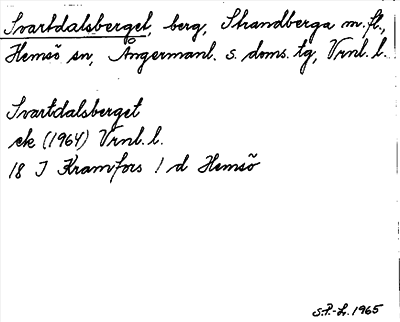 Svartdalsberget, berg, Strandberga m.fl.,
Hemsö sn, Ångermanl. s. doms. tg, Vrnl. l.
Svartdalsberget
ek (1964) Vrnl. l.
18 I Kramfors 1 d Hemsö
S.P.-L. 1965